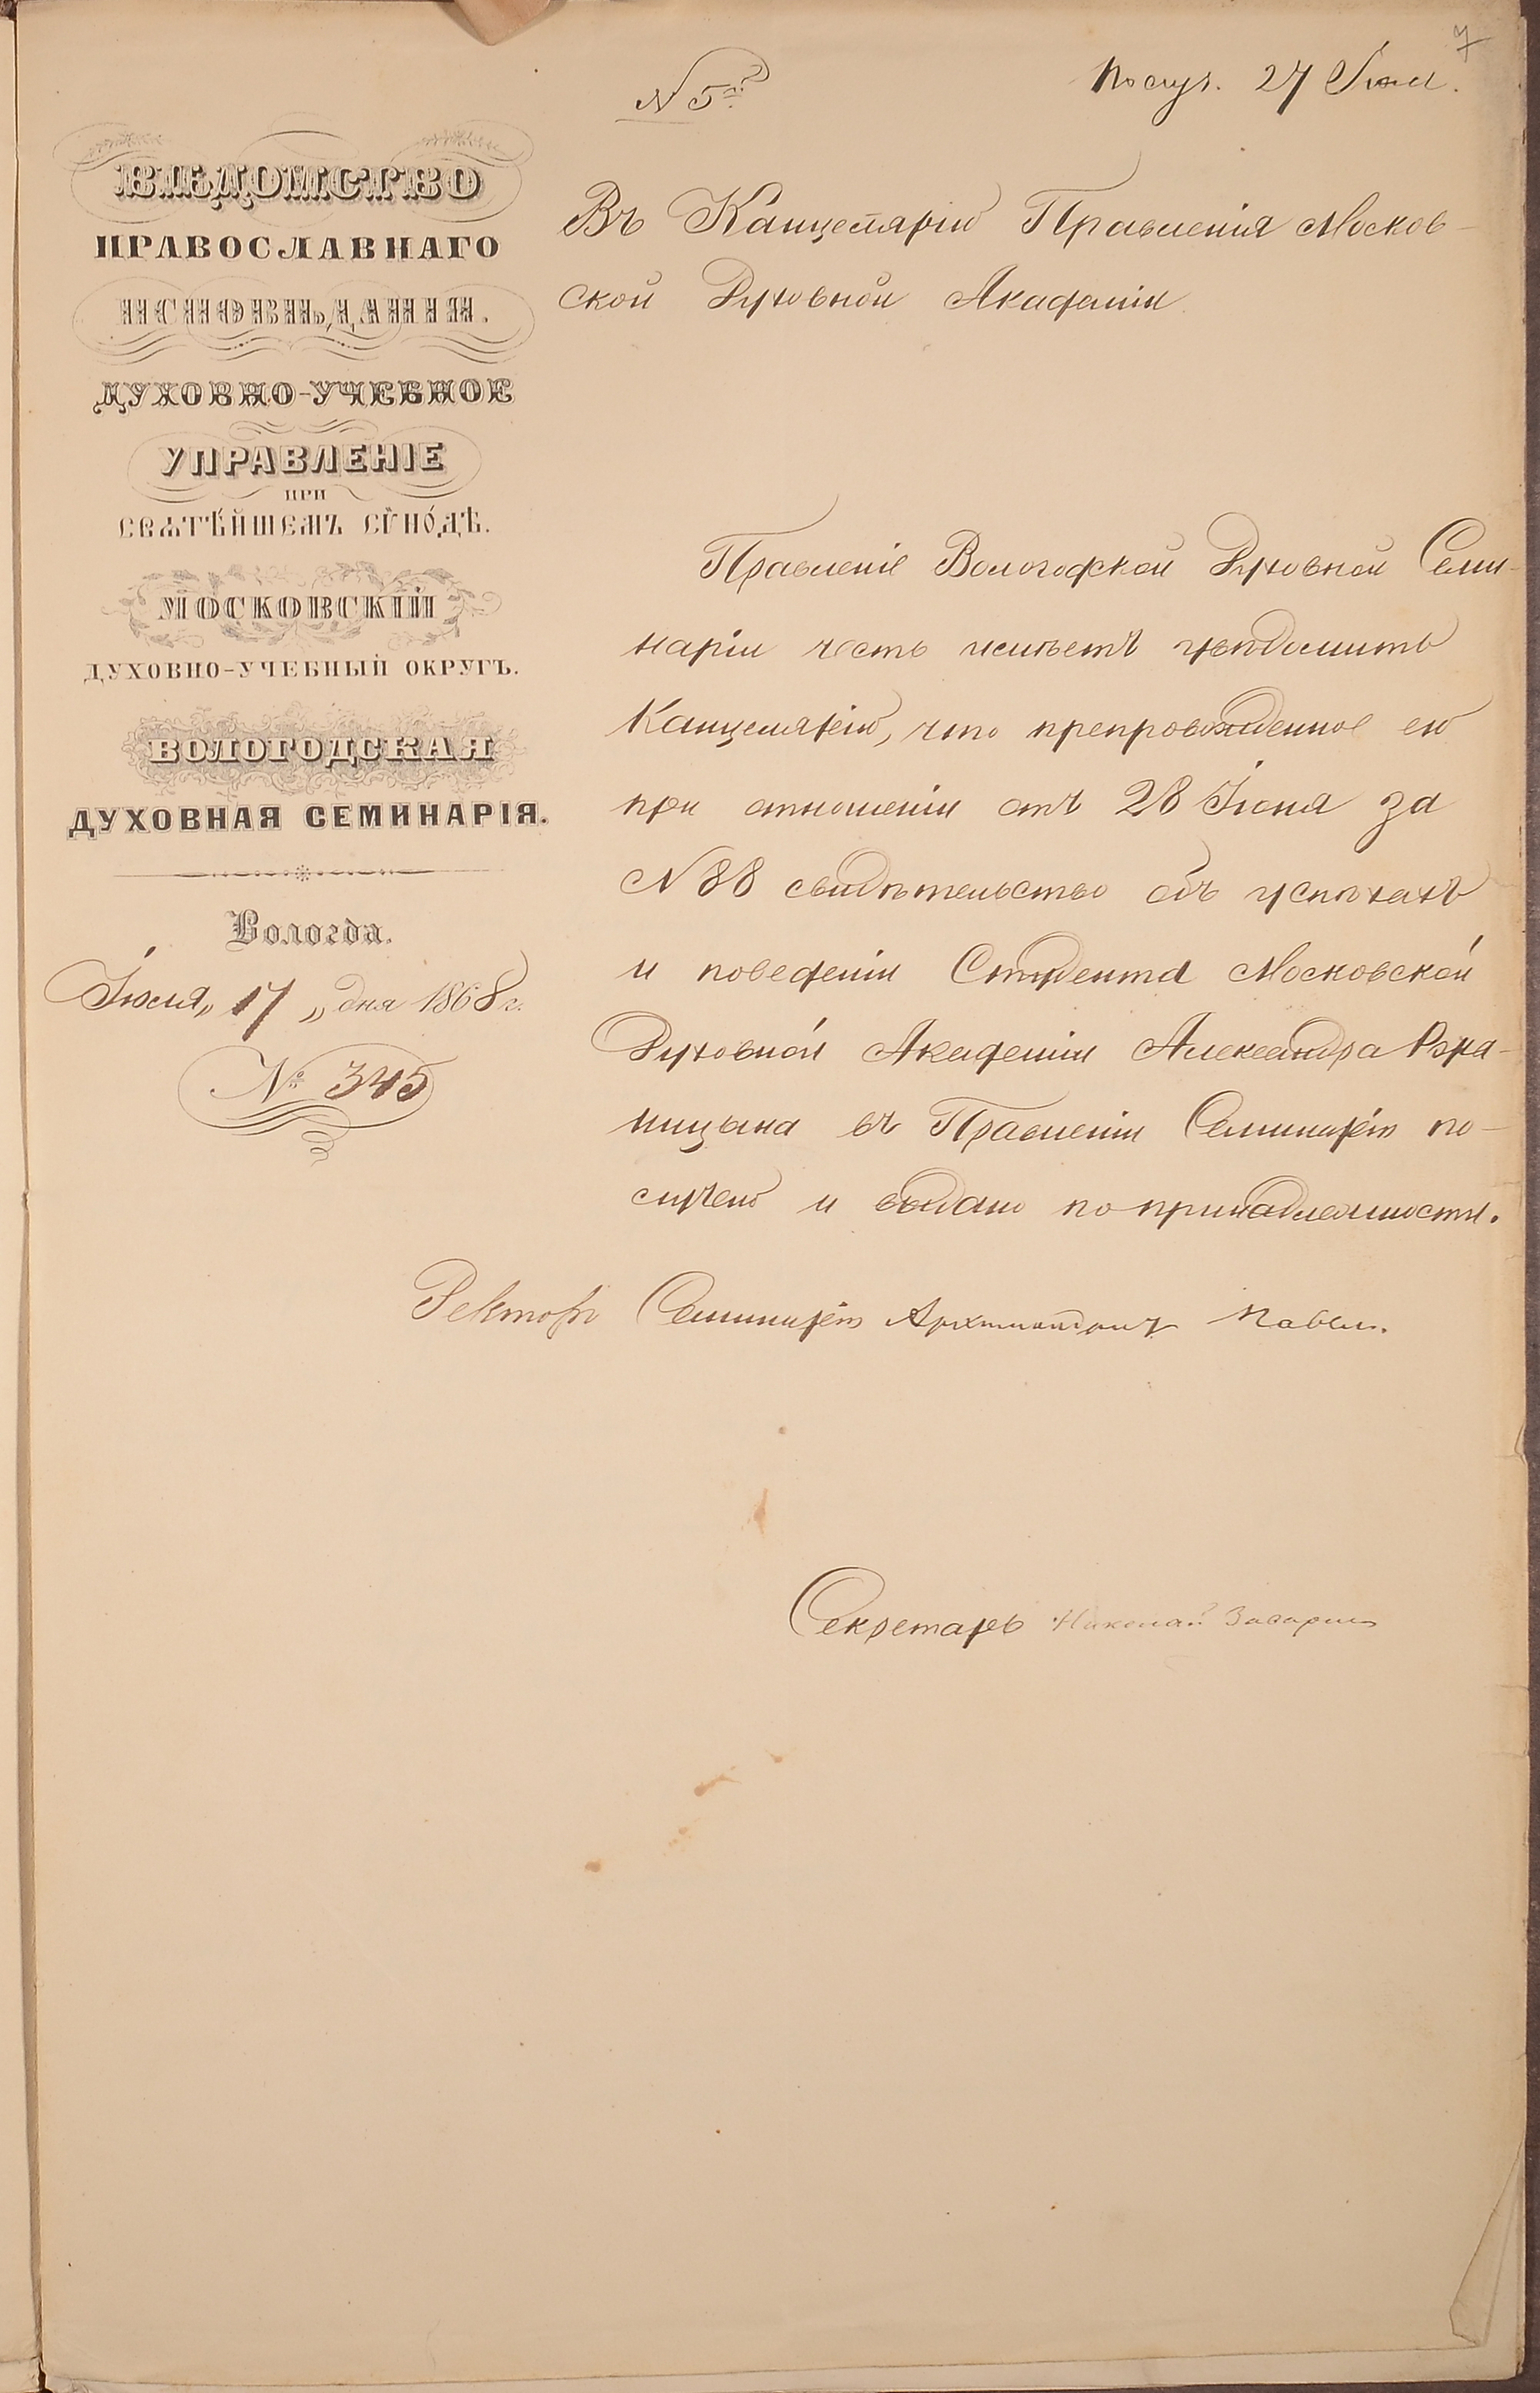 7
N 5
Получ. 27 Июл.
ВѢДОМСТВО
ПРАВОСЛАВНАГО
ИСПОВѢДАНІЯ.
ДУХОВНО-УЧЕБНОЕ
УПРАВЛЕНІЕ
ПРИ
СВѦТѢ́ЙШЕМЪ СѴНО́ДѢ.
МОСКОВСКІЙ
ДУХОВНО-УЧЕБНЫЙ ОКРУГЪ.
ВОЛОГОДСКАЯ
ДУХОВНАЯ СЕМИНАРІЯ.
Вологда.
Іюля „ 17 „ дня 1868 г.
№ 345
Въ Канцелярію Правленія Москов-
ской Духовной Академіи
Правленіе Вологодской Духовной Семи-
наріи честь имѣетъ увѣдомить
Канцелярію, что препровожденное ею
при отношеніи отъ 28 Іюня за
N 88 свидѣтельство объ успѣхахъ
и поведеніи Студента Московской
Духовной Академіи Александра Рѣжа-
ницына въ Правленіи Семинаріи по-
лучено и выдано по принадлежности.
Ректоръ Семинаріи Архимандритъ Павелъ.
Секретарь Николай